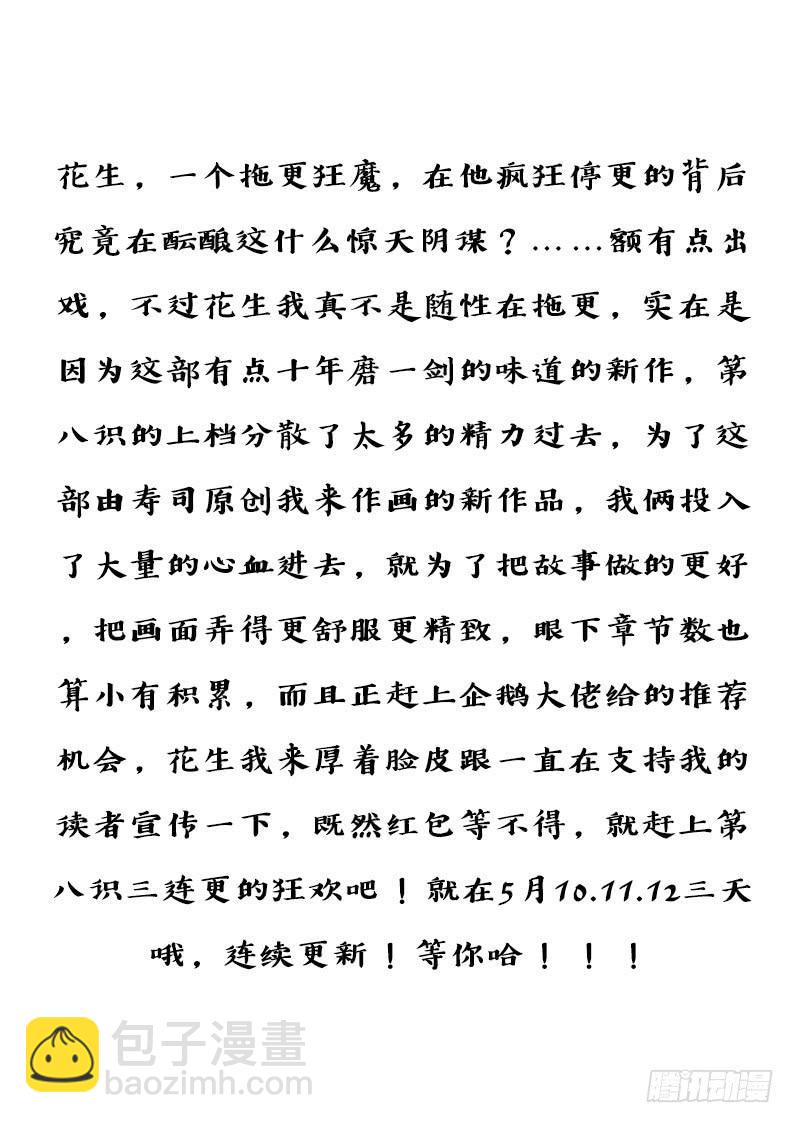 花生，一个拖更狂魔，在他疯狂停更的背后
究竟在酝酿这什么惊天阴谋？……额有点出
戏，不过花生我真不是随性在拖更，实在是
因为这部有点十年磨一剑的味道的新作，第
八识的上档分散了太多的精力过去，为了这
部由寿司原创我来作画的新作品，我俩投入
了大量的心血进去，就为了把故事做的更好
，把画面弄得更舒服更精致，眼下章节数也
算小有积累，而且正赶上企鹅大佬给的推荐
机会，花生我来厚着脸皮跟一直在支持我的
读者宣传一下，既然红包等不得，就赶上第
八识三连更的狂欢吧！就在5月10.11.12三天
哦，连续更新！等你哈！！！
包子漫畫
baozimh.com
腾讯动漫